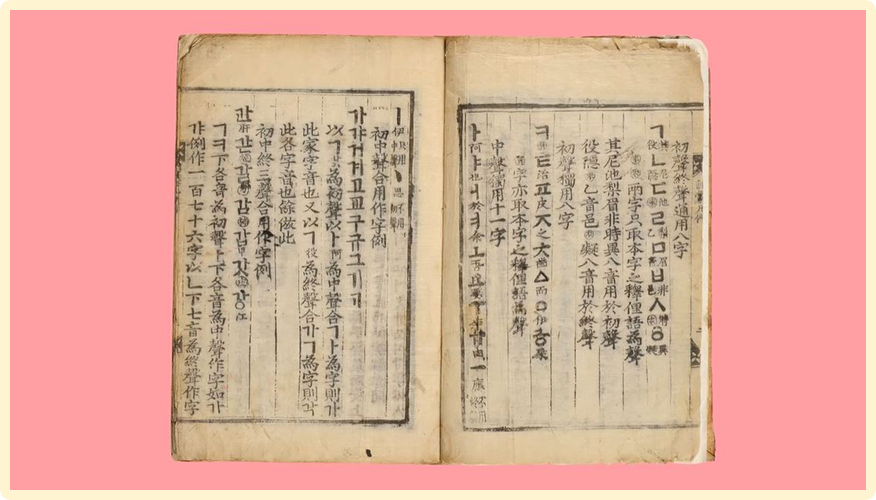 初聲終聲通用八字
ㄱ其役ㄴ尼隱ㄷ池末ㄹ梨乙ㅁ眉音ㅂ非邑ㅅ時衣ㆁ異凝
末衣兩字只取本字之釋俚語為聲
其尼池梨眉非時異八音用於初聲
役隱末乙音邑衣凝八音用於終聲
初聲獨用八字
ㅋ箕ㅌ治ㅍ皮ㅈ之ㅊ齒ㅿ而ㅇ伊ㅎ屎
箕字亦取本字之釋俚語為聲
中聲獨用十一字
ㅏ阿ㅑ也ㅓ於ㅕ余ㅗ吾ㅛ要ㅜ牛ㅠ由ㅡ應不用終聲
ㅣ伊只用中聲ㆍ思不用初聲
初中聲合用作字例
가갸거겨고교구규그기ᄀᆞ
以ㄱ其為初聲以ㅏ阿為中聲合ㄱㅏ為字則가
此家字音也又以ㄱ役為終聲合가ㄱ為字則각
此各字音也餘倣此
初中終三聲合用作字例
간肝갇笠갈刀감柿갑甲갓皮강江
ㄱㅋ下各音為初聲ㅏ下各音為中聲作字如가
갸例作一百七十六字以ㄴ下七音為終聲作字